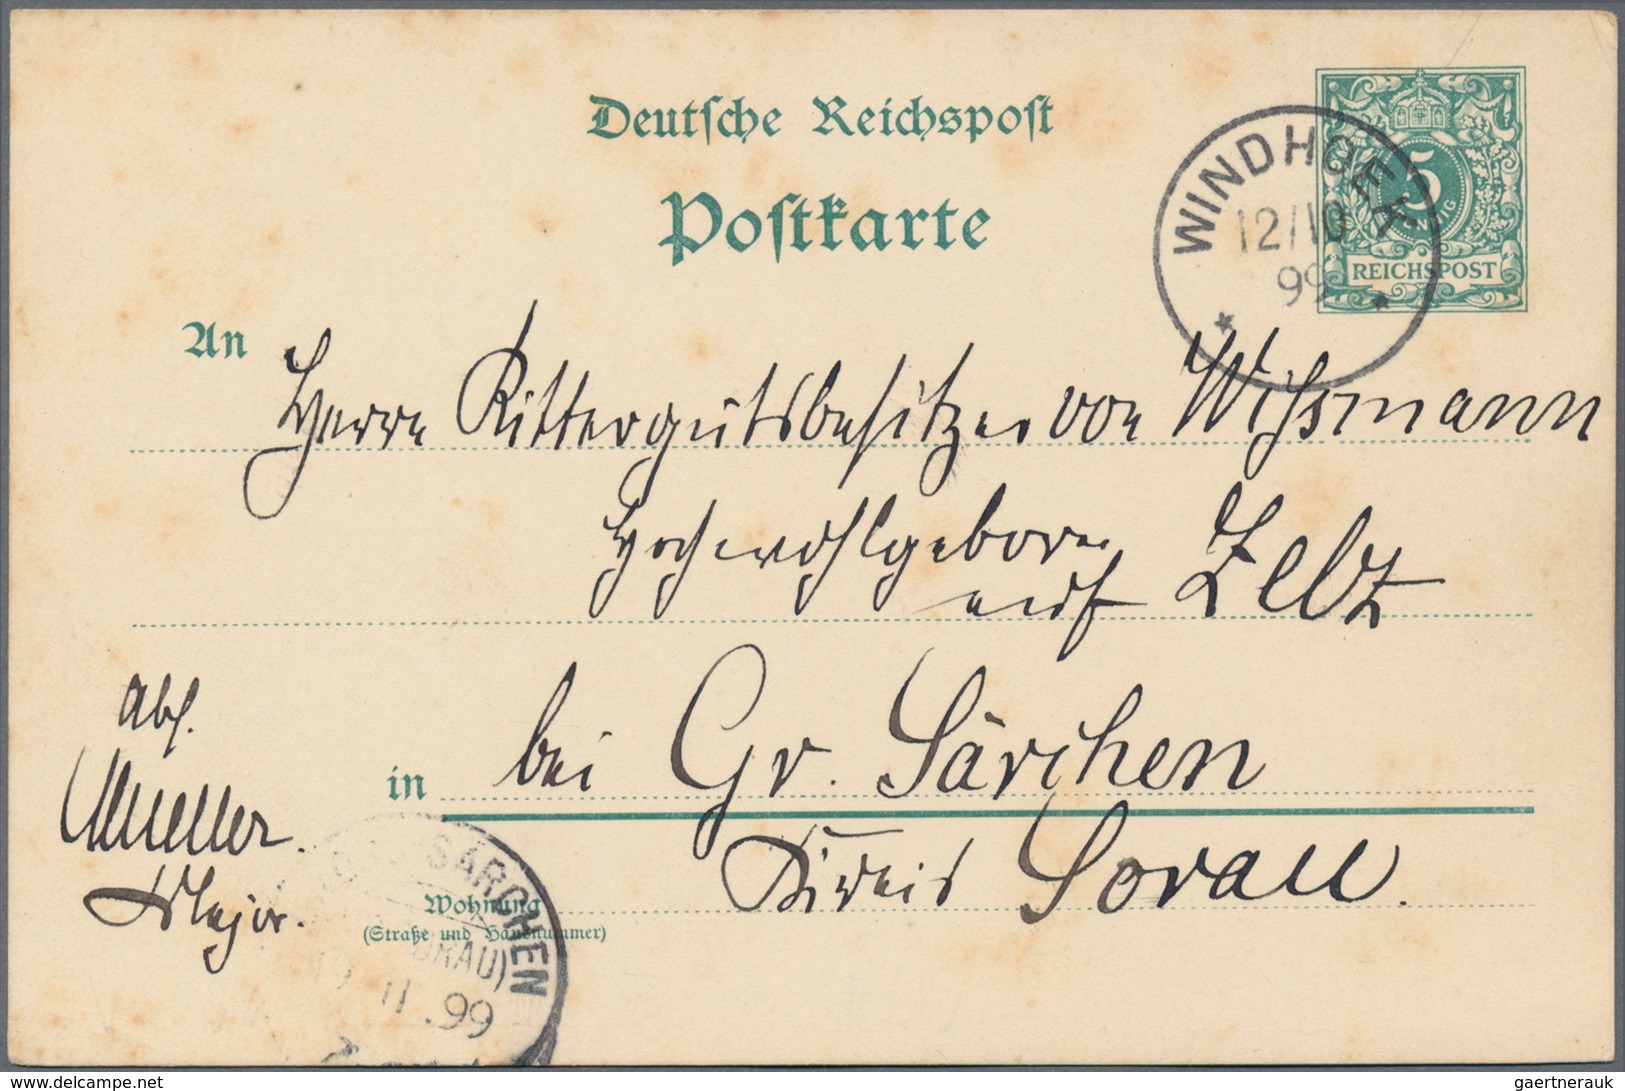 Deutsche Reichspost
Postkarte
5
REICHSPOST
WINDHOEK
12/10
99
An
Herrn Rittergutsbesitzer von Wissmann
Hochwohlgeboren
auf Zeltz
in bei Gr. Särchen
Kreis Sorau.
Abs.
Mueller.
Major.
Wohnung
(Straße und Hausnummer)
SÄRCHEN
19 11 .99
www.delcampe.net
gaertnerauk